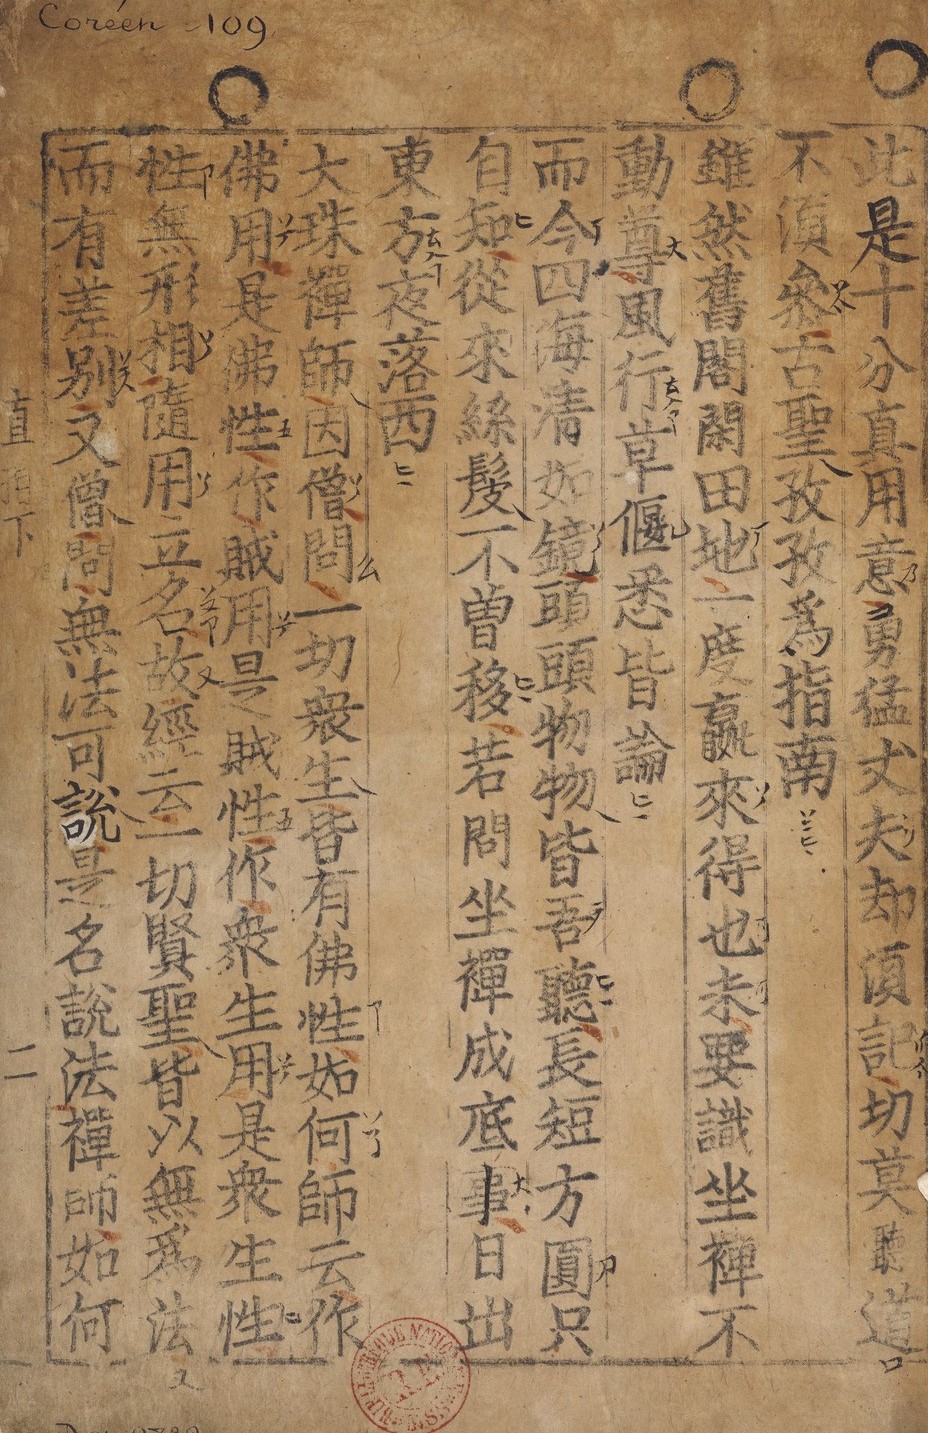 Coréen 109
此是十分真用意勇猛丈夫却須記切莫聽道
不須叅古聖孜孜爲指南
雖然舊閣閑田地一度贏來得也未要識坐禪不
動尊風行草偃悉皆論
而今四海清如鏡頭頭物物皆吾聽長短方圓只
自知從來絲髮不曾移若問坐禪成底事日出
東方夜落西
大珠禪師因僧問一切衆生皆有佛性如何師云作
佛用是佛性作賊用是賊性作衆生用是衆生性
性無形相隨用立名故經云一切賢聖皆以無爲法
而有差别又僧問無法可說是名說法禪師如何
直指下
二